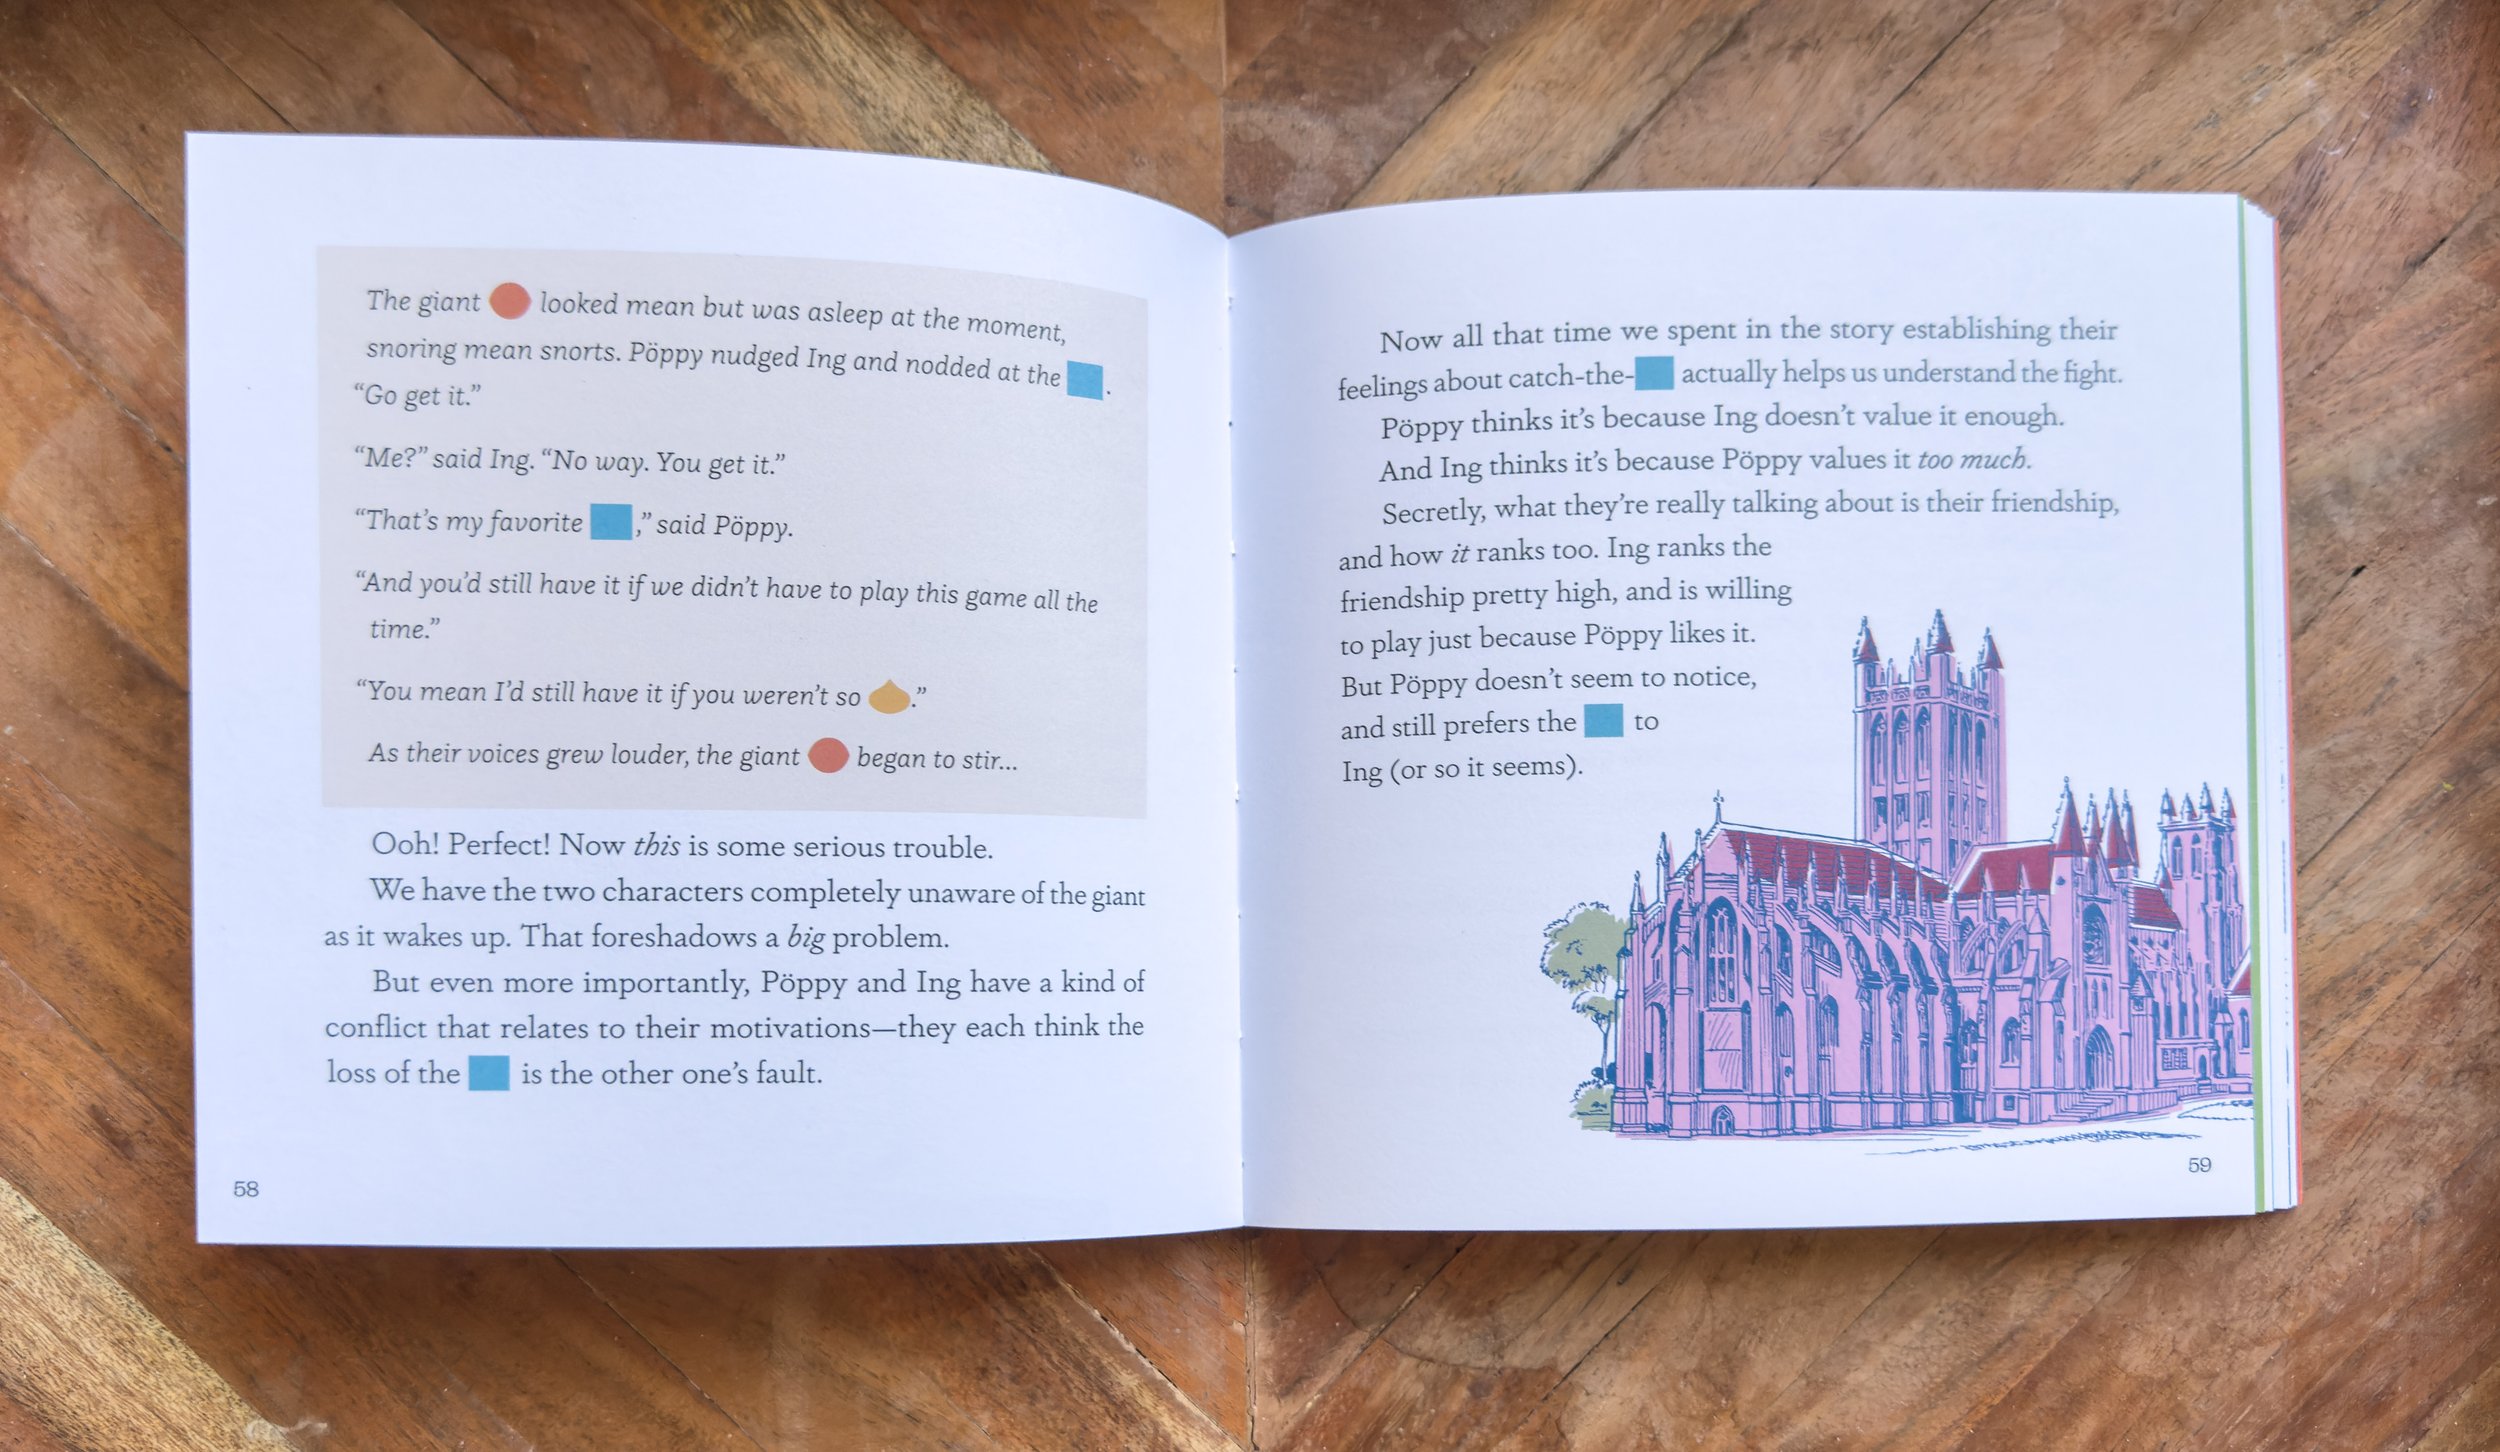 The giant looked mean but was asleep at the moment,
snoring mean snorts. Pöppy nudged Ing and nodded at the .
“Go get it.”
“Me?” said Ing. “No way. You get it.”
“That’s my favorite ,” said Pöppy.
“And you’d still have it if we didn’t have to play this game all the
time.”
“You mean I’d still have it if you weren’t so .”
As their voices grew louder, the giant began to stir...
Ooh! Perfect! Now this is some serious trouble.
We have the two characters completely unaware of the giant
as it wakes up. That foreshadows a big problem.
But even more importantly, Pöppy and Ing have a kind of
conflict that relates to their motivations—they each think the
loss of the is the other one’s fault.
58
Now all that time we spent in the story establishing their
feelings about catch-the- actually helps us understand the fight.
Pöppy thinks it’s because Ing doesn’t value it enough.
And Ing thinks it’s because Pöppy values it too much.
Secretly, what they’re really talking about is their friendship,
and how it ranks too. Ing ranks the
friendship pretty high, and is willing
to play just because Pöppy likes it.
But Pöppy doesn’t seem to notice,
and still prefers the to
Ing (or so it seems).
59